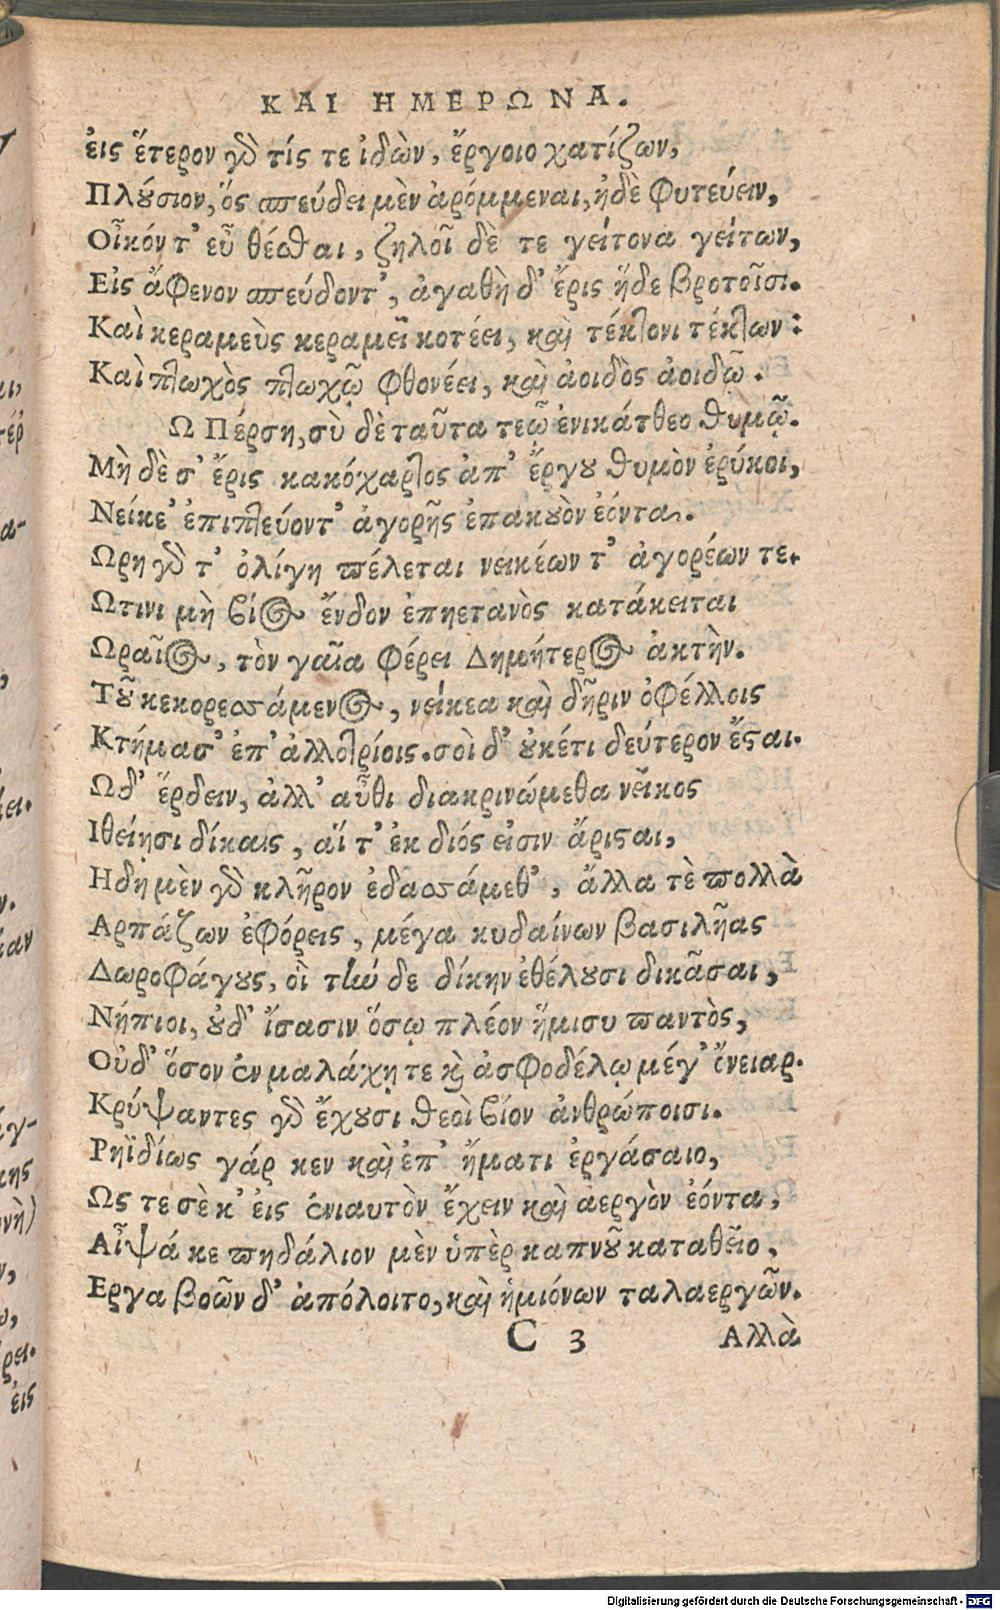 ΚΑΙ ΗΜΕΡΩΝ Α.
ἐις ἕτερον γὸ τίς τε ἰδὼν, ἔργοιο χατίζων,
Πλούσιον, ὅς σπεύδει μὲν ἀρόμμεναι, ἠδὲ φυτεύειν,
Οἶκόν τ' εὖ θέσθαι, ζηλοῖ δὲ τε γείτονα γείτων,
Εἰς ἄφενον σπεύδοντ', ἀγαθὴ δ' ἔρις ἥδε βροτοῖσι.
Καὶ κεραμεὺς κεραμεῖ κοτέει, καὶ τέκτονι τέκτων:
Καὶ πτωχὸς πτωχῷ φθονέει, καὶ ἀοιδὸς ἀοιδῷ.
Ω Πέρση, σὺ δὲ ταῦτα τεῷ ἐνικάτθεο θυμῷ.
Μὴ δὲ σ' ἔρις κακόχαρτος ἀπ' ἔργου θυμὸν ἐρύκοι,
Νείκε' ἐπιπτεύοντ' ἀγορῆς ἐπακουὸν ἐόντα.
Ωρη γὸ τ' ὀλίγη πέλεται νεικέων τ' ἀγορέων τε.
Ωτινι μὴ βίος ἔνδον ἐπηετανὸς κατάκειται
Ωραῖος, τὸν γαῖα φέρει Δημήτερος ἀκτὴν.
Τοῦ κεκορεσσάμενος, νείκεα καὶ δῆριν ὀφέλλοις
Κτήμασ' ἐπ' ἀλλοτρίοις. σοὶ δ' οὐκέτι δεύτερον ἔσται.
Ωδ' ἔρδειν, ἀλλ' αὖθι διακρινώμεθα νεῖκος
Ιθείησι δίκαις, αἵ τ' ἐκ διός εἰσιν ἄρισται,
Ηδη μὲν γὸ κλῆρον ἐδασσάμεθ', ἄλλα τὲ πολλὰ
Αρπάζων ἐφόρεις, μέγα κυδαίνων βασιλῆας
Δωροφάγους, οἳ τήν δε δίκην ἐθέλουσι δικᾶσαι,
Νήπιοι, οὐδ' ἴσασιν ὅσῳ πλέον ἥμισυ παντὸς,
Οὐδ' ὅσον ἐν μαλάχῃ τε καὶ ἀσφοδέλῳ μέγ' ὄνειαρ.
Κρύψαντες γὸ ἔχουσι θεοὶ βίον ἀνθρώποισι.
Ρηϊδίως γάρ κεν καὶ ἐπ' ἤματι ἐργάσαιο,
Ως τε σὲ κ' εἰς ἐνιαυτὸν ἔχειν καὶ αεργὸν ἐόντα,
Αἶψά κε πηδάλιον μὲν ὑπὲρ καπνοῦ καταθεῖο,
Εργα βοῶν δ' ἀπόλοιτο, καὶ ἡμιόνων ταλαεργῶν.
C 3 Αλλὰ
Digitalisierung gefördert durch die Deutsche Forschungsgemeinschaft - DFG